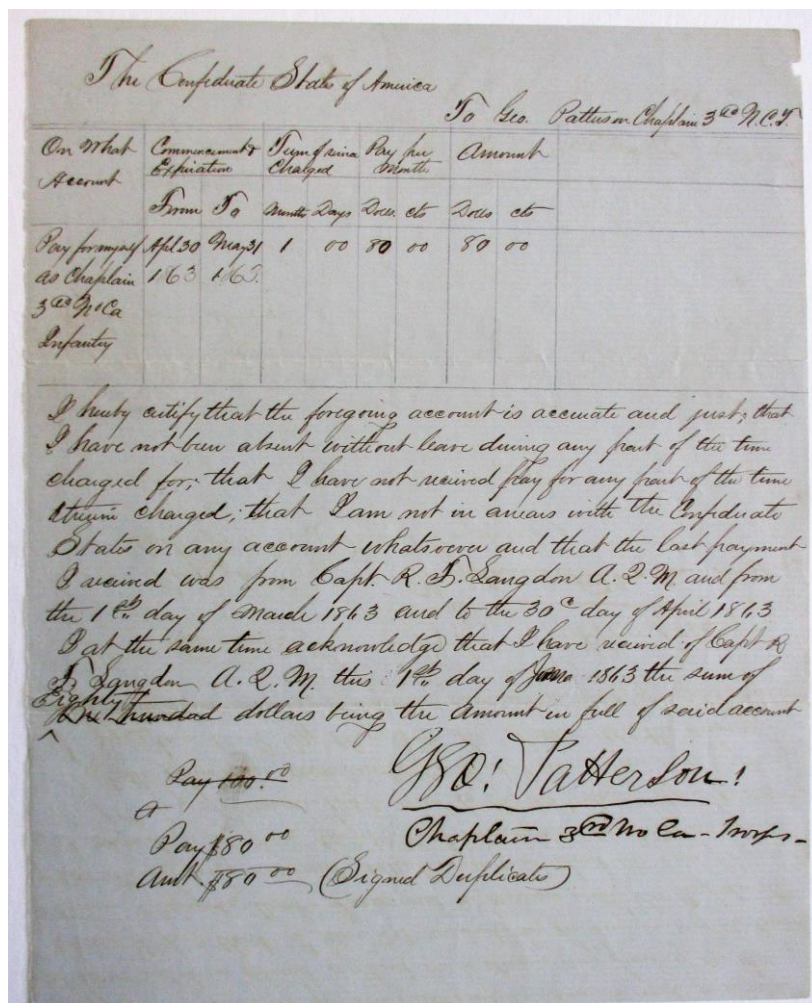 The Confederate States of America
To Geo. Patterson Chaplain 3rd N.C.T.
On What Account
Commencement & Expiration
Term of service Charged
Pay per Month
Amount
From To Months Days Dolls. cts Dolls cts
Pay for myself Apl 30 May 31 1 00 80 00 80 00
as Chaplain 1863 1863.
3rd No Ca
Infantry
I hereby certify that the foregoing account is accurate and just; that
I have not been absent without leave during any part of the time
charged for; that I have not received pay for any part of the time
therein charged; that I am not in arrears with the Confederate
States on any account whatsoever and that the last payment
I received was from Capt. R. F. Langdon A. Q. M. and from
the 1st day of March 1863 and to the 30th day of April 1863
I at the same time acknowledge that I have received of Capt R
F. Langdon A. Q. M. this 1st day of June 1863 the sum of
Eighty
One Hundred dollars being the amount in full of said account
Pay 100.00
Geo! Patterson!
Pay $80 00
Chaplain 3rd No Ca - Troops -
Amt $80 00 (Signed Duplicate)